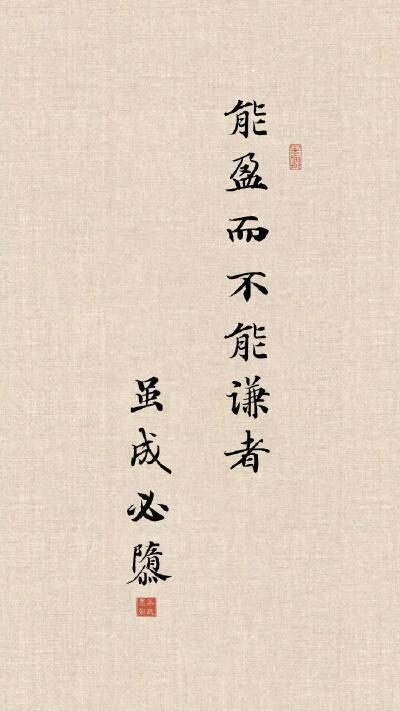 能盈而不能谦者
虽成必隳